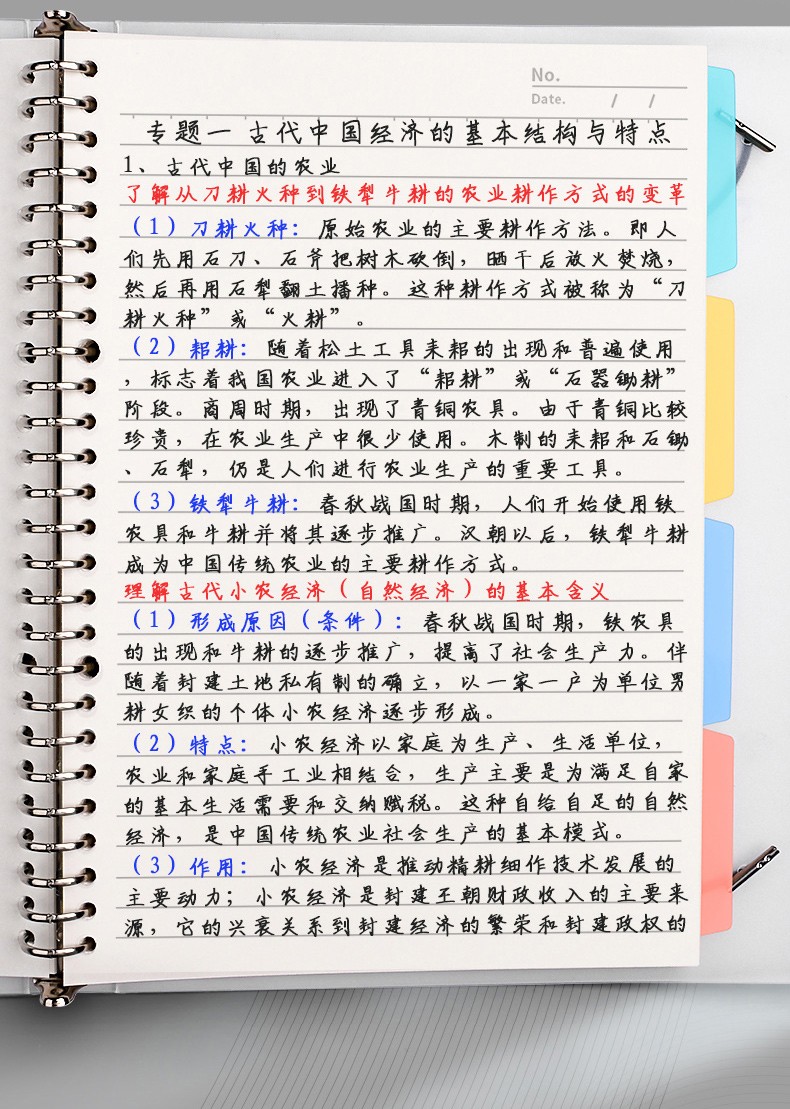 No.
Date. / /
专题一 古代中国经济的基本结构与特点
1、古代中国的农业
了解从刀耕火种到铁犁牛耕的农业耕作方式的变革
（1）刀耕火种：原始农业的主要耕作方法。即人
们先用石刀、石斧把树木砍倒，晒干后放火焚烧，
然后再用石犁翻土播种。这种耕作方式被称为“刀
耕火种”或“火耕”。
（2）耜耕：随着松土工具耒耜的出现和普遍使用
，标志着我国农业进入了“耜耕”或“石器锄耕”
阶段。商周时期，出现了青铜农具。由于青铜比较
珍贵，在农业生产中很少使用。木制的耒耜和石锄
、石犁，仍是人们进行农业生产的重要工具。
（3）铁犁牛耕：春秋战国时期，人们开始使用铁
农具和牛耕并将其逐步推广。汉朝以后，铁犁牛耕
成为中国传统农业的主要耕作方式。
理解古代小农经济（自然经济）的基本含义
（1）形成原因（条件）：春秋战国时期，铁农具
的出现和牛耕的逐步推广，提高了社会生产力。伴
随着封建土地私有制的确立，以一家一户为单位男
耕女织的个体小农经济逐步形成。
（2）特点：小农经济以家庭为生产、生活单位，
农业和家庭手工业相结合，生产主要是为满足自家
的基本生活需要和交纳赋税。这种自给自足的自然
经济，是中国传统农业社会生产的基本模式。
（3）作用：小农经济是推动精耕细作技术发展的
主要动力；小农经济是封建王朝财政收入的主要来
源，它的兴衰关系到封建经济的繁荣和封建政权的